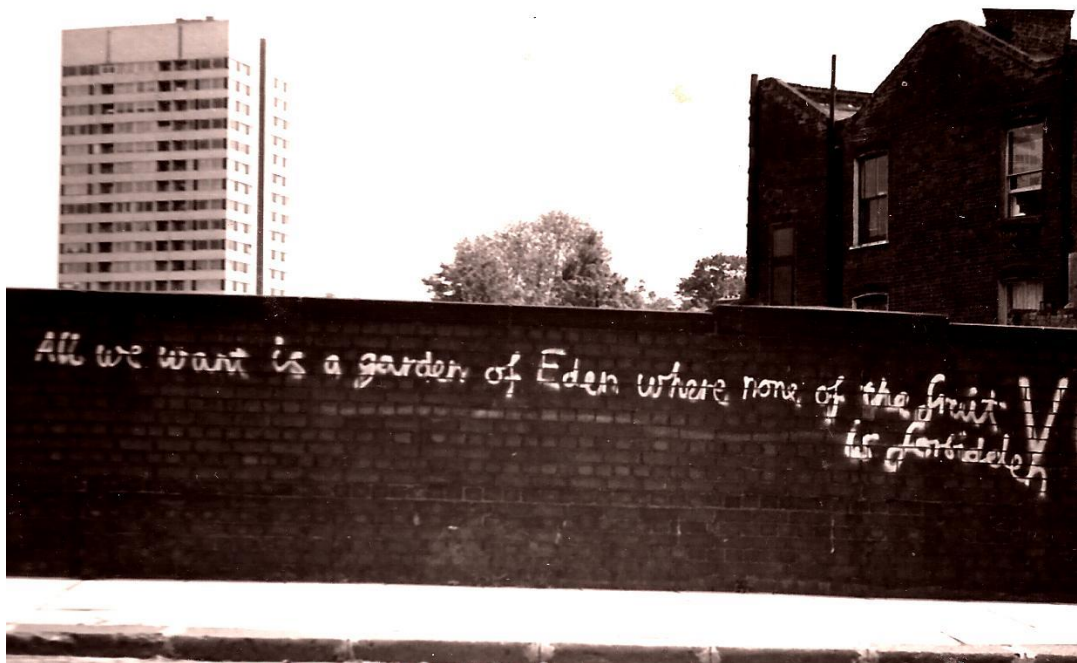 All we want is a garden of Eden where none of the fruit V
is forbidden